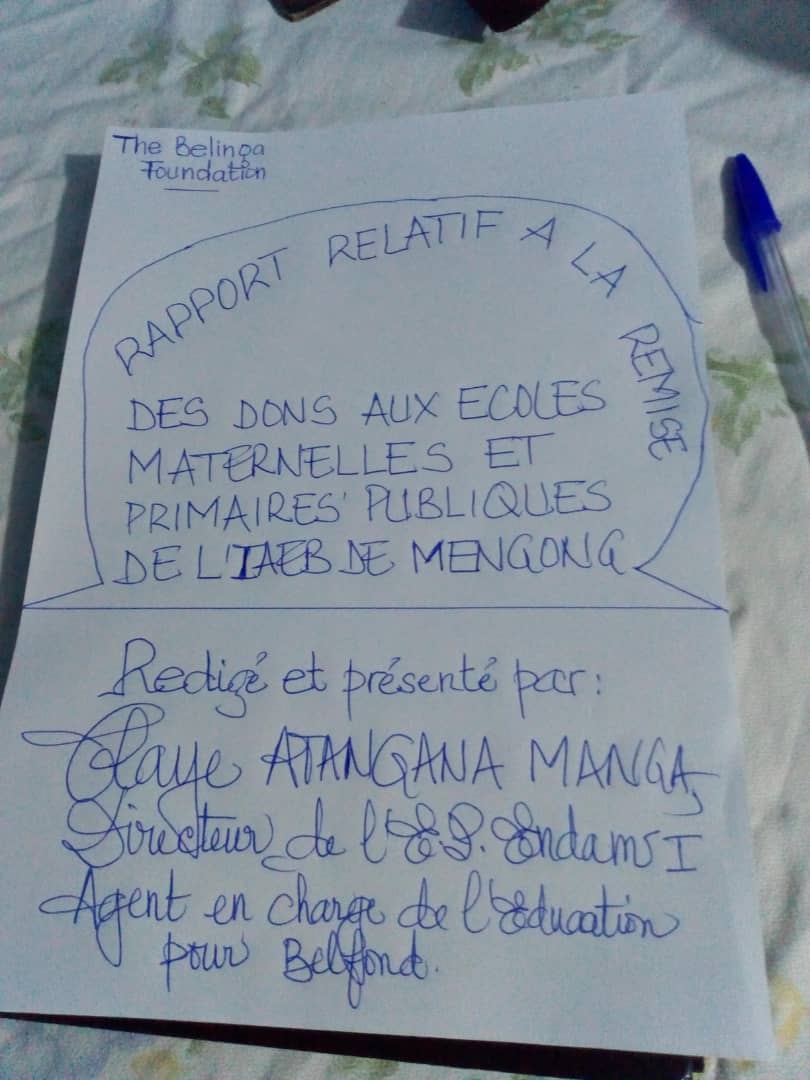 The Belinga
Foundation
RAPPORT RELATIF A LA REMISE
DES DONS AUX ECOLES
MATERNELLES ET
PRIMAIRES PUBLIQUES
DE L'IAEB DE MENGONG
Redigé et présenté par:
ATANGANA MANGA,
Directeur de l'E.P. Endam I
Agent en charge de l'Education
pour Belfond.